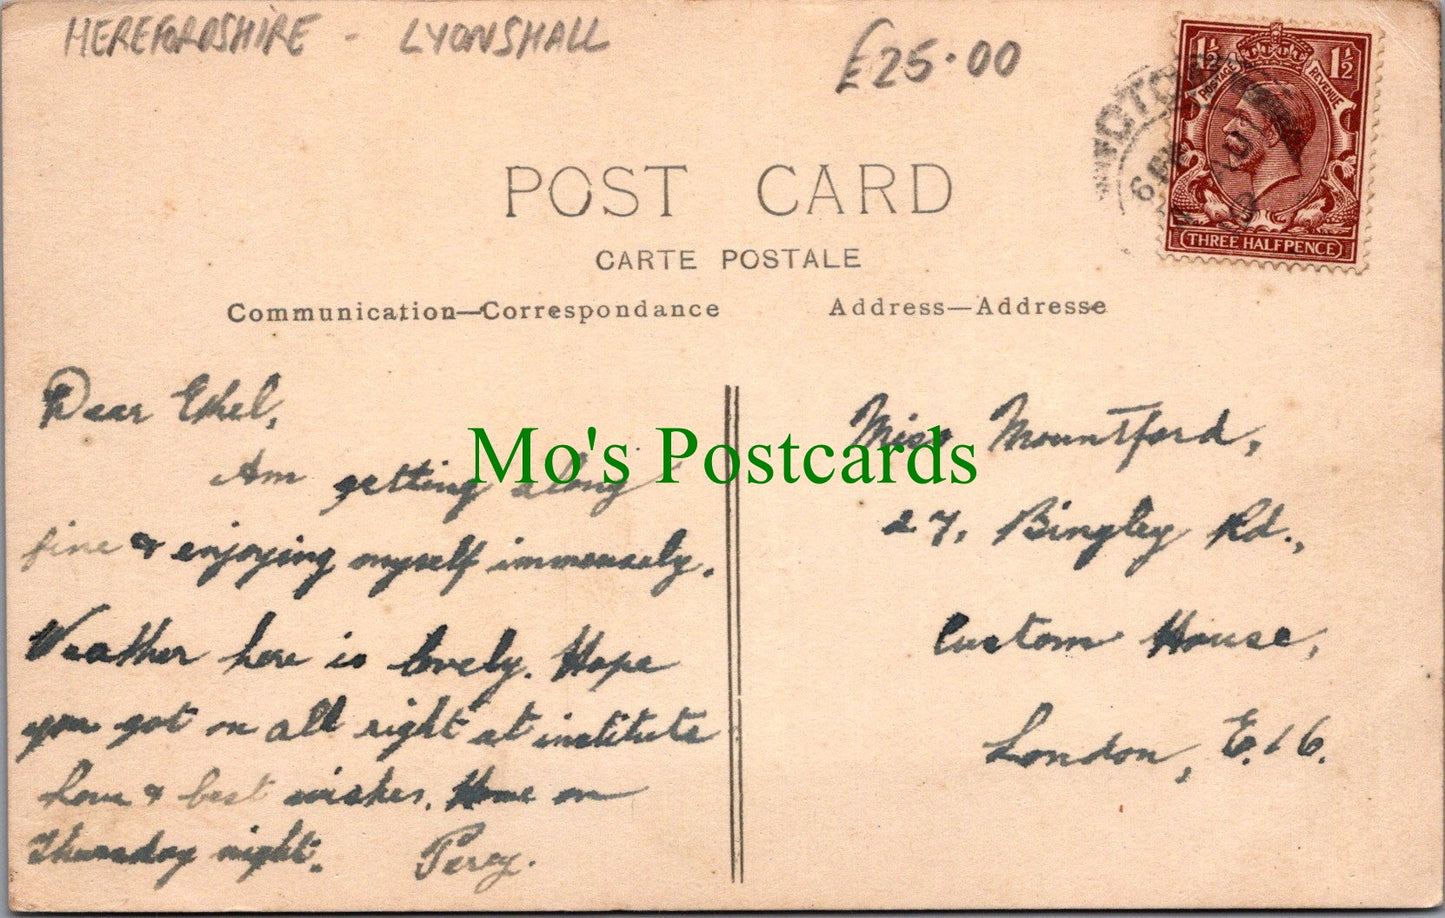 HEREFORDSHIRE - LYONSHALL
£25.00
1½ 1½
POSTAGE REVENUE
THREE HALFPENCE
6 PM
AU
POST CARD
CARTE POSTALE
Communication—Correspondance
Address—Addresse
Dear Ethel,
Am getting along
fine & enjoying myself immensely.
Weather here is lovely. Hope
you got on all right at institute
Love & best wishes. Home on
Thursday night. Percy.
Mo's Postcards
Miss Mountford,
27, Bingley Rd.,
Custom House,
London, E.16.